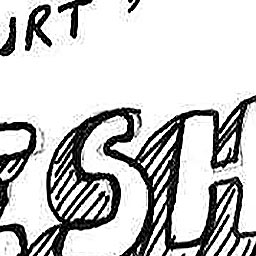 URT
ESH